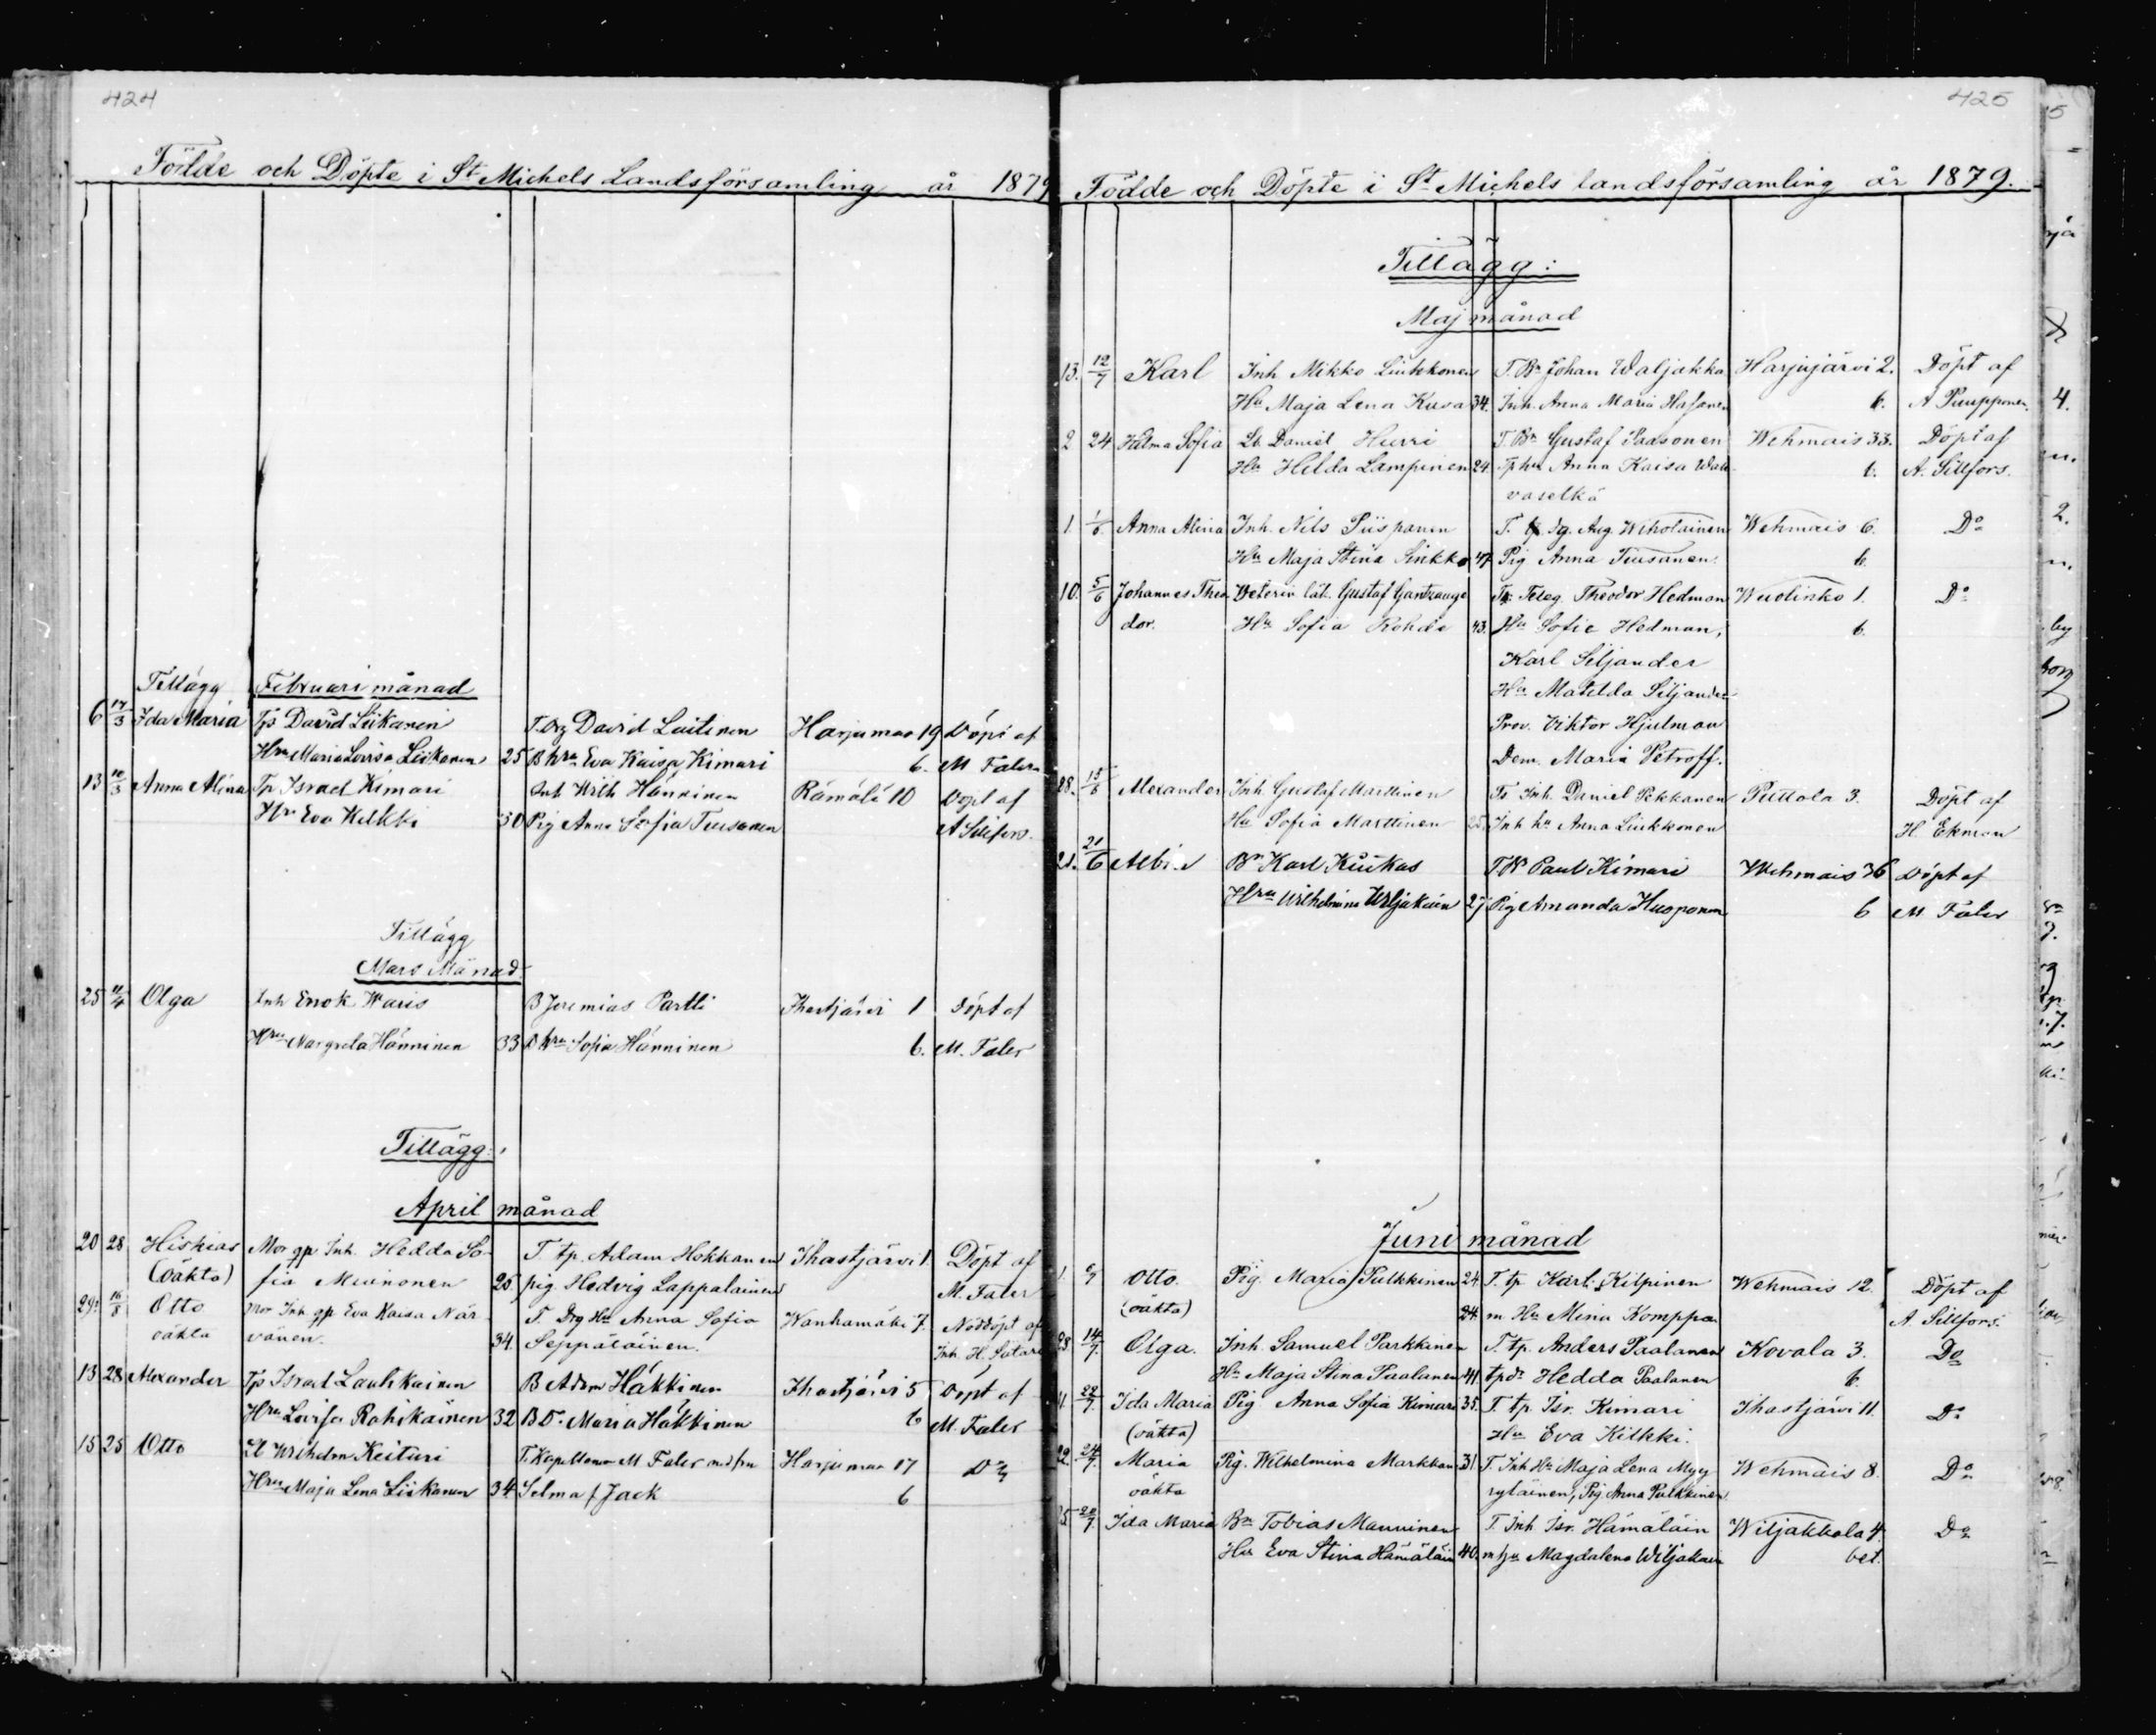 424
Födde och Döpte i St Michels Landsförsamling år 1879
Tillägg Februari månad
6 17/3 Ida Maria Tp David Liikanen T. Drg David Laitinen Harjumaa 19 Döpt af
Hru Maria Lovisa Liikanen 25 B hru Eva Kaisa Kimari 6. M Faler
13 Anna Alina Tp Israel Kimari Inh Wilh Hänninen Rämälä 10 Döpt af
Hru Eva Kilkki 30 Pig Anna Sofia Tuusanen A Sillfors.
Tillägg
Mars Månad
25 11/4 Olga Inh Enok Waris B Jeremias Partti Ihastjärvi 1 Döpt af
Hru Margreta Hänninen 33 D hru Sofia Hänninen 6. M. Faler
Tillägg:
April månad
20 28 Hiskias Mor gp. Inh. Hedda So- T. tp. Adam Hokkanen Ihastjärvi 1 Döpt af
(oäkta) fia Muinonen 26 pig. Hedvig Lappalainen M. Faler
29. 16/8 Otto Mor Inh gp Eva Kaisa När- T. Drg Hu Anna Sofia Wanhamäki 7. Nöddöpt af
oäkta vänen. 34. Seppäläinen. Inh. H. Satari
13 28 Alexander Tp Israel Lauhkainen B Adam Häkkinen Ihastjärvi 5 Döpt af
Hru Lovisa Rahikainen 32 B D. Maria Häkkinen 6 M. Faler
15 25 Otto Lt Wilhelm Keituri T. Kapellanen M Faler med fru Harjumaa 17 Do
Hru Maja Lena Liikanen 34 Selma f Jack 6
425
Födde och Döpte i St Michels landsförsamling år 1879.
Tillägg:
Maj månad
13. 12/7 Karl Inh Mikko Liukkonen T. Bn Johan Waljakka Harjujärvi 2. Döpt af
Hu Maja Lena Kusa 34. Inh. Anna Maria Hasanen 6. A Puupponen.
2 24 Hilma Sofia Lt. Daniel Hurri T. Bn Gustaf Paasonen Wehmais 33. Döpt af
Hu Hilda Lampinen 24. Tp hu Anna Kaisa Wall- 6. A. Sillfors.
vaselkä
1. 1/6 Anna Alina Inh. Nils Piispanen T. tp dg. Aug. Weholainen Wehmais 6. Do
Hu Maja Stina Sinkko 47 Pig Anna Tuusanen. 6.
10. 5/6 Johannes Theo- Veterin. läk. Gustaf Gantzauge T. Teleg. Theodor Hedman Wuolinko 1. Do
dor. Hu Sofia Rohde 43. Hu Sofie Hedman, 6.
Karl Siljander
Hu Matilda Siljander
Prov. Viktor Hjulman
Dem. Maria Petroff.
28. 15/6 Alexander Inh. Gustaf Marttinen Ts Inh. Daniel Pekkanen Puttola 3. Döpt af
Hu Sofia Marttinen 25. Inh hu Anna Liukkonen H. Ekman
21. 21/6 Albin Bn Karl Kuikas T Bn Paul Kimari Wehmais 36 Döpt af
Hru Wilhelmina Wiljakain 27 Pig Amanda Husponen 6 M. Faler
Juni månad
1. 6/7 Otto. Pig. Maria Pulkkinen 24. T. tp. Karl Kilpinen Wehmais 12. Döpt af
(oäkta) 24. m. Hu Mina Komppa A. Sillfors.
28 14/7. Olga. Inh. Samuel Parkkinen T. tp. Anders Paalanen Kovala 3. Do
Hu Maja Stina Paalanen 41. tpdr Hedda Paalanen 6.
11. 22/7. Ida Maria Pig. Anna Sofia Kimari 35. T. tp. Isr. Kimari Ihastjärvi 11. Do
(oäkta) Hu Eva Kilkki.
22. 24/7. Maria Pig. Wilhelmina Markkan 31. T. Inh. Hu Maja Lena Myy- Wehmais 8. Do
oäkta ryläinen, Pig. Anna Pulkkinen
25. 28/7. Ida Maria Bn Tobias Manninen T. Inh Isr. Hämäläin Wiljakkala 4. Do
Hu Eva Stina Hämäläin 40. m hu Magdalena Wiljakain bet.